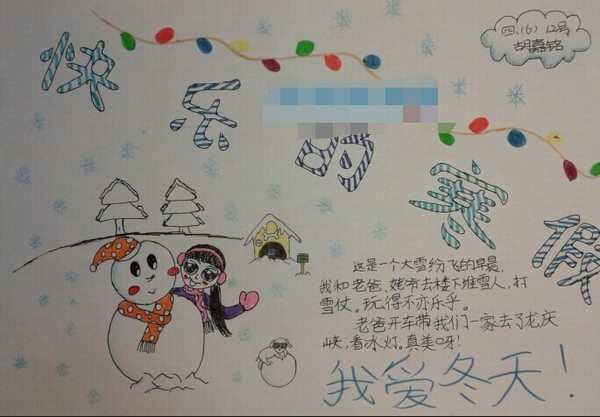 四、(6) 12号
胡嘉铭
快乐的寒假
这是一个大雪纷飞的早晨,
我和老爸、姥爷去楼下堆雪人,打
雪仗。玩得不亦乐乎。
老爸开车带我们一家去了龙庆
峡,看冰灯。真美呀!
我爱冬天!